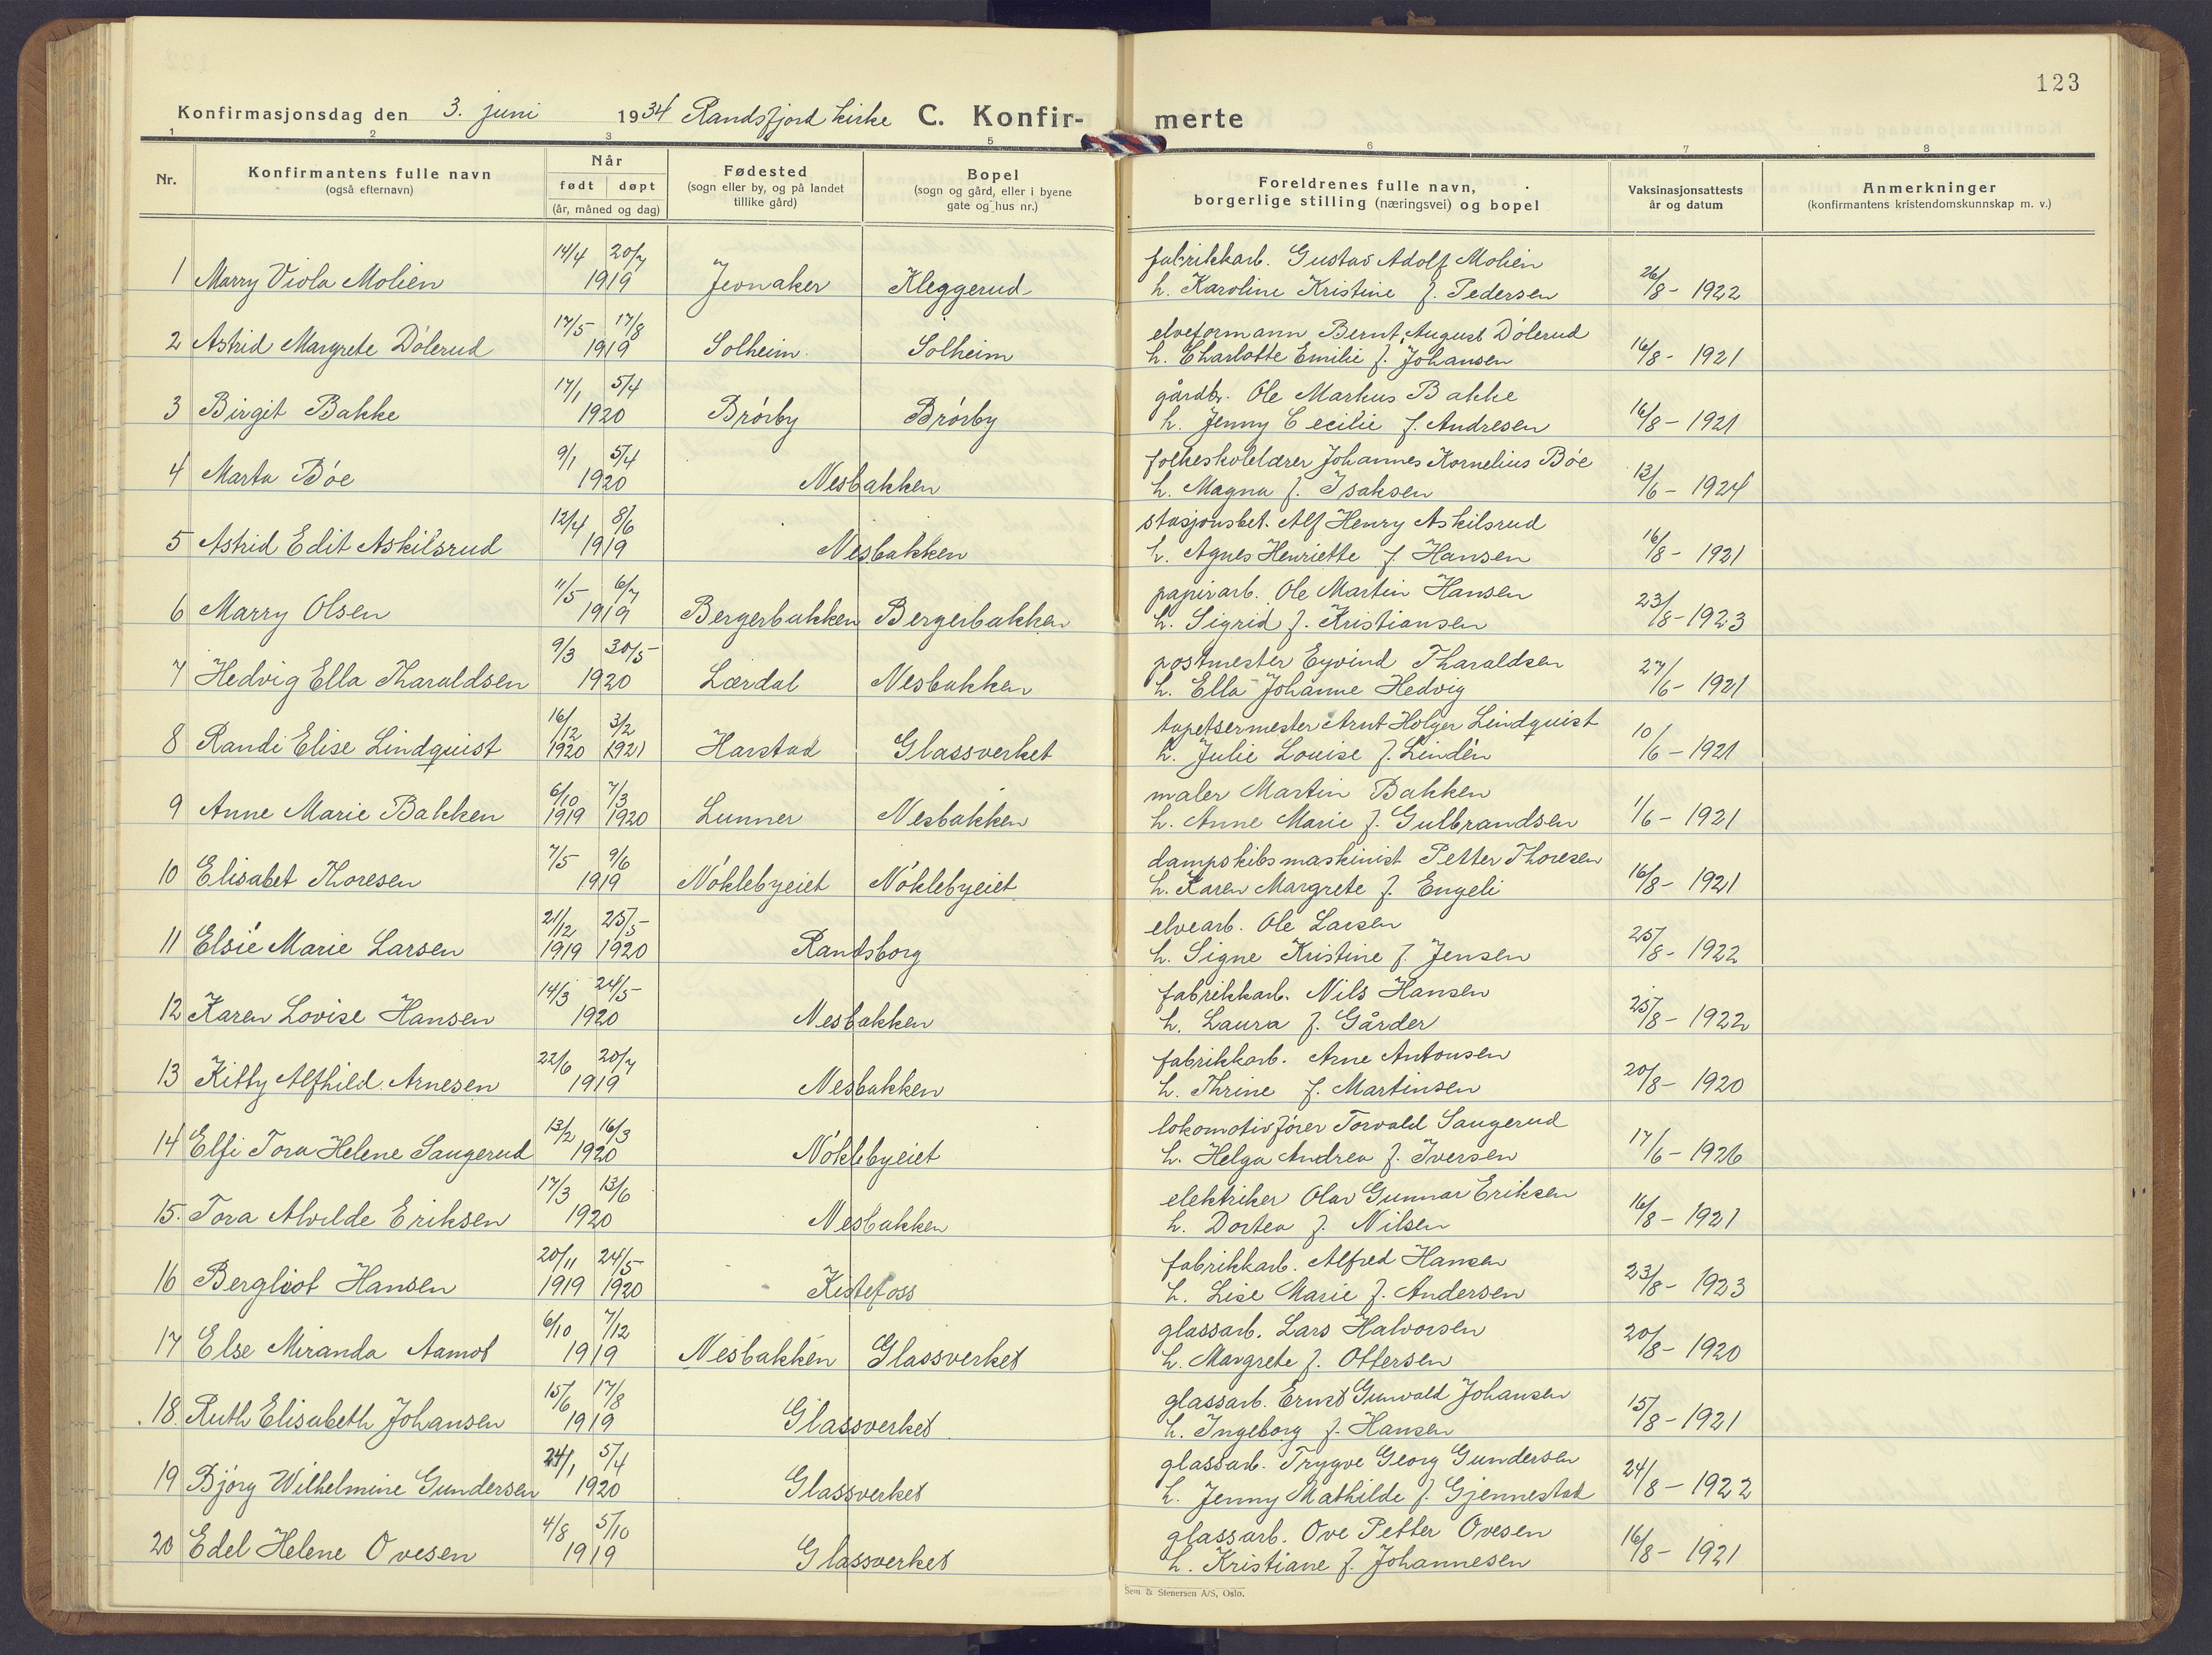 123
Konfirmasjonsdag den 3. juni 1934 Randsfjord kirke C. Konfir- merte
1 2 3 5 6 7 8
Nr.
Konfirmantens fulle navn
(også efternavn)
Når
født døpt
(år, måned og dag)
Fødested
(sogn eller by, og på landet
tillike gård)
Bopel
(sogn og gård, eller i byene
gate og hus nr.)
Foreldrenes fulle navn,
borgerlige stilling (næringsvei) og bopel
Vaksinasjonsattests
år og datum
Anmerkninger
(konfirmantens kristendomskunnskap m. v.)
14/4 20/7 fabrikkarb. Gustav Adolf Molien
1 Marry Viola Molien 1919 Jevnaker Kleggerud h. Karoline Kristine f. Pedersen 26/8 - 1922
17/5 17/8 elveformann Bernt August Dølerud
2 Astrid Margrete Dølerud 1919 Solheim Solheim h. Charlotte Emilie f. Johansen 16/8 - 1921
17/1 5/4 gårdbr. Ole Markus Bakke
3 Birgit Bakke 1920 Brørby Brørby h. Jenny Cecilie f. Andresen 16/8 - 1921
9/1 5/4 folkeskolelærer Johannes Kornelius Bøe
4 Marta Bøe 1920 Nesbakken h. Magna f. Isaksen 13/6 - 1924
12/4 8/6 stasjonsbet. Alf Henry Askilsrud
5 Astrid Edit Askilsrud 1919 Nesbakken h. Agnes Henriette f. Hansen 16/8 - 1921
11/5 6/7 papirarb. Ole Martin Hansen
6 Marry Olsen 1919 Bergerbakken Bergerbakken h. Sigrid f. Kristiansen 23/8 - 1923
9/3 30/5 postmester Eyvind Tharaldsen
7 Hedvig Ella Tharaldsen 1920 Lærdal Nesbakken h. Ella Johanne Hedvig 27/6 - 1921
16/12 3/2 tapetsermester Arnt Holger Lindquist
8 Randi Elise Lindquist 1920 1921 Harstad Glassverket h. Julie Louise f. Lindén 10/6 - 1921
6/10 7/3 maler Martin Bakken
9 Anne Marie Bakken 1919 1920 Lunner Nesbakken h. Anne Marie f. Gulbrandsen 1/6 - 1921
7/5 9/6 dampskibsmaskinist Petter Thoresen
10 Elisabet Thoresen 1919 Nøklebyeiet Nøklebyeiet h. Karen Margrete f. Engeli 16/8 - 1921
21/12 25/5 elvearb. Ole Larsen
11 Elsie Marie Larsen 1919 1920 Randsborg h. Signe Kristine f. Jensen 25/8 - 1922
14/3 24/5 fabrikkarb. Nils Hansen
12 Karen Lovise Hansen 1920 Nesbakken h. Laura f. Gårder 25/8 - 1922
22/6 20/7 fabrikkarb. Arne Antonsen
13 Kitty Alfhild Arnesen 1919 Nesbakken h. Thrine f. Martinsen 20/8 - 1920
13/2 16/3 lokomotivfører Torvald Saugerud
14 Elfi Tora Helene Saugerud 1920 Nøklebyeiet h. Helga Andrea f. Iversen 17/6 - 1926
17/3 13/6 elektriker Olav Gunnar Eriksen
15. Tora Alvilde Eriksen 1920 Nesbakken h. Dortea f. Nilsen 16/8 - 1921
20/11 24/5 fabrikkarb. Alfred Hansen
16 Bergliot Hansen 1919 1920 Kistefoss h. Lise Marie f. Andersen 23/8 - 1923
6/10 7/12 glassarb. Lars Halvorsen
17 Else Miranda Aamot 1919 Nesbakken Glassverket h. Margrete f. Ottersen 20/8 - 1920
15/6 17/8 glassarb. Ernst Gunvald Johansen
18. Ruth Elisabeth Johansen 1919 Glassverket h. Ingeborg f. Hansen 15/8 - 1921
24/1 5/4 glassarb. Trygve Georg Gundersen
19 Bjørg Wilhelmine Gundersen 1920 Glassverket h. Jenny Mathilde f. Gjennestad 24/8 - 1922
4/8 5/10 glassarb. Ove Petter Ovesen
20 Edel Helene Ovesen 1919 Glassverket h. Kristiane f. Johannesen 16/8 - 1921
Sem & Stenersen A/S, Oslo.